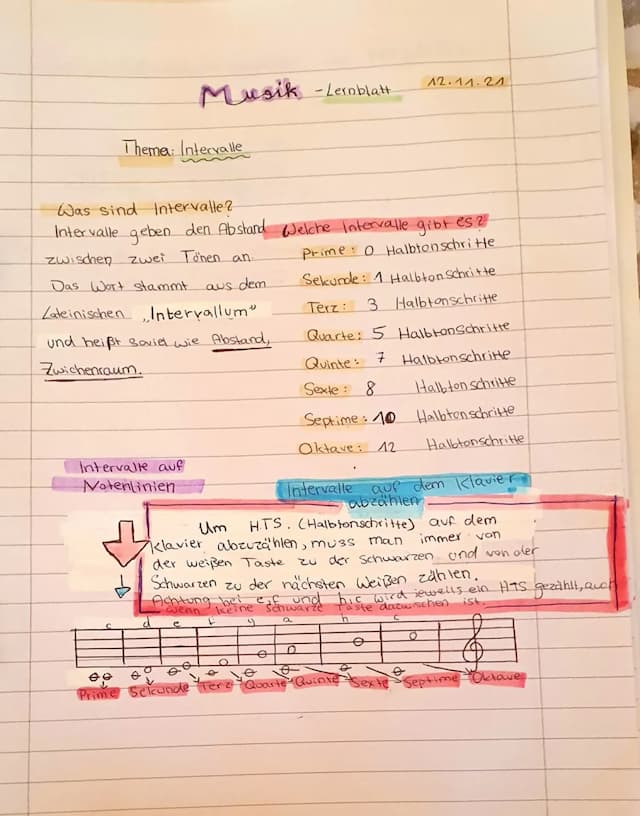 Musik - Lernblatt 12.11.21
Thema: Intervalle
Was sind Intervalle?
Intervalle geben den Abstand
zwischen zwei Tönen an.
Das Wort stammt aus dem
Lateinischen „Intervallum"
und heißt soviel wie Abstand,
Zwichenraum.
Welche Intervalle gibt es?
Prime: 0 Halbtonschritte
Sekunde: 1 Halbtonschritte
Terz: 3 Halbtonschritte
Quarte: 5 Halbtonschritte
Quinte: 7 Halbtonschritte
Sexte: 8 Halbtonschritte
Septime: 10 Halbtonschritte
Oktave: 12 Halbtonschritte
Intervalle auf
Notenlinien
Intervalle auf dem Klavier
abzählen
Um HTS. (Halbtonschritte) auf dem
Klavier abzuzählen, muss man immer von
der weißen Taste zu der Schwarzen und von der
Schwarzen zu der nächsten Weißen zählen.
Achtung bei e,f und h,c wird jeweils ein HTS gezählt, auch
wenn keine schwarze Taste dazwischen ist.
c d e f g a h c
Prime Sekunde Terz Quarte Quinte Sexte Septime Oktave